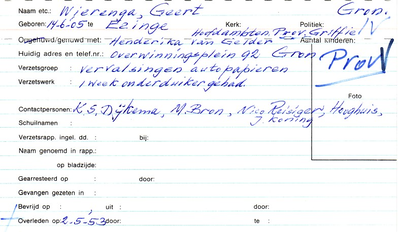 Naam etc.: Wierenga, Geert Gron.
Geboren: 14-6-05 te Ezinge Kerk: Politiek:
Hoofdambten. Prov. Griffie
Ongehuwd/gehuwd met: Henderika van Gelder Aantal kinderen: IV
Huidig adres en telef.nr.: Overwinningsplein 92 Gron
Prov
Verzetsgroep : Vervalsingen autopapieren
Verzetswerk : 1 week onderduiker gehad.
Foto
Contactpersonen: K.S. Dijkema, M. Bron, Nico Reisiger, Hooghuis,
J Koning
Schuilnaam :
Verzetsrapp. ingel. dd. : bij:
Naam genoemd in rapp.:
op bladzijde:
Gearresteerd op : door:
Gevangen gezeten in :
Bevrijd op : , uit : door:
Overleden op: 2-5-53 door: te :